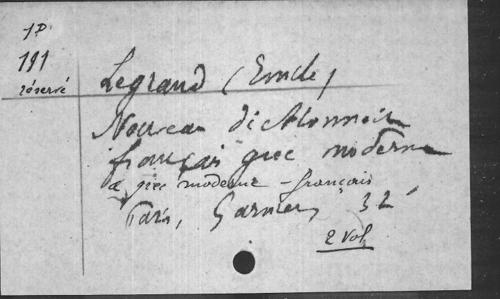 JP
191
réservé
Legrand (Emile)
Nouveau dictionnaire
français grec moderne
& grec moderne - français
Paris, Garnier, 32°
2 vol.